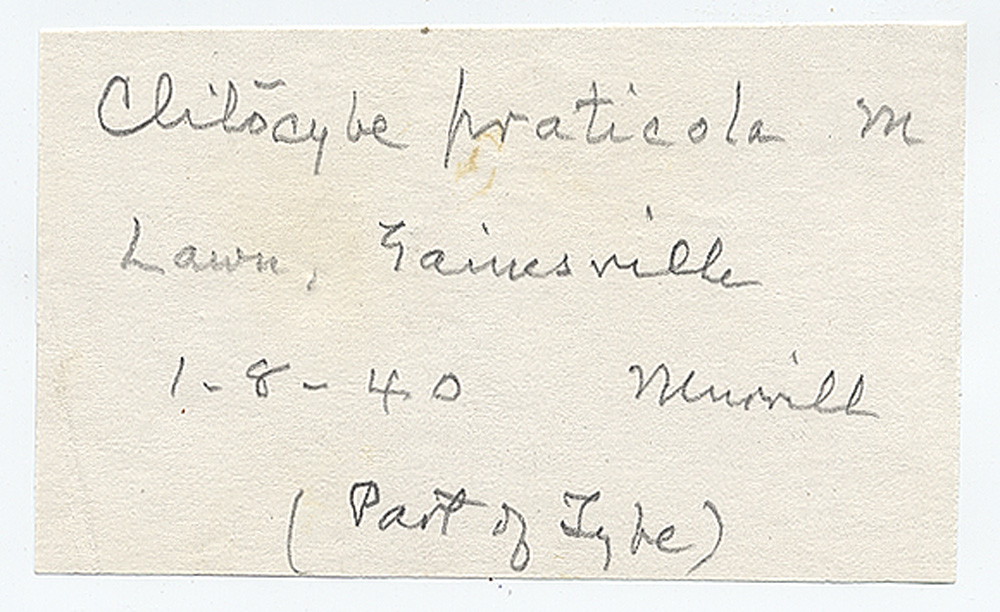 Clitocybe praticola M
Lawn, Gainesville
1-8-40 Murrill
(Part of Type)